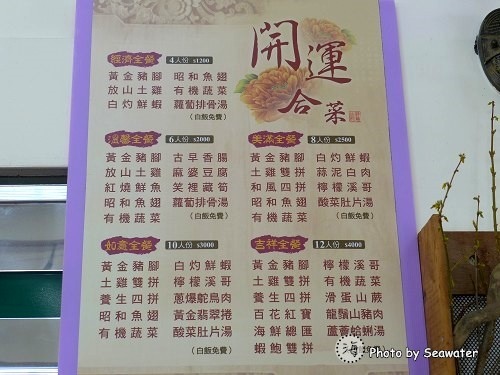 開運
合菜
經濟全餐 4人份 $1200
黃金豬腳 昭和魚翅
放山土雞 有機蔬菜
白灼鮮蝦 蘿蔔排骨湯
(白飯免費)
溫馨全餐 6人份 $2000
黃金豬腳 古早香腸
放山土雞 麻婆豆腐
紅燒鮮魚 笑裡藏筍
昭和魚翅 蘿蔔排骨湯
有機蔬菜 (白飯免費)
美滿全餐 8人份 $2500
黃金豬腳 白灼鮮蝦
土雞雙拼 蒜泥白肉
和風四拼 檸檬溪哥
昭和魚翅 酸菜肚片湯
有機蔬菜 (白飯免費)
如意全餐 10人份 $3000
黃金豬腳 白灼鮮蝦
土雞雙拼 檸檬溪哥
養生四拼 蔥爆鴕鳥肉
昭和魚翅 黃金翡翠捲
有機蔬菜 酸菜肚片湯
(白飯免費)
吉祥全餐 12人份 $4000
黃金豬腳 檸檬溪哥
土雞雙拼 有機蔬菜
養生四拼 滑蛋山蕨
百花紅寶 龍鬚山豬肉
海鮮總匯 蘆薈蛤蜊湯
蝦鮑雙拼
海
Photo by Seawater